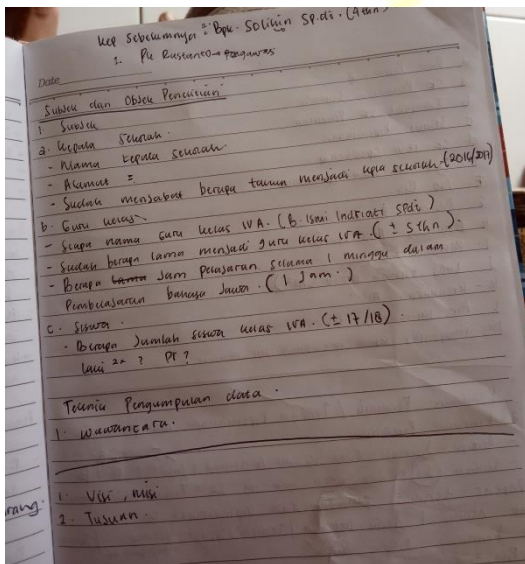 kep sebelumnya : Bpk. Solihin SP.di. (4 thn)
1. Pk Rustanto → Pengawas
Date
Subjek dan Objek Penelitian
1. Subjek
a. Kepala Sekolah.
- Nama kepala sekolah
- Alamat =
- Sudah menjabat berapa tahun menjadi kepla sekolah. (2016/2017)
b. Guru kelas
- Siapa nama guru kelas IV A. (B. Ismi Indriati SPdi)
- Sudah berapa lama menjadi guru kelas IV A. (± 5 thn).
- Berapa lama Jam pelajaran selama 1 minggu dalam
Pembelajaran bahasa Jawa. (1 Jam.)
c. Siswa.
- Berapa Jumlah siswa kelas IV A. (± 17/18).
laki 2x ? Pr ?
Teknik Pengumpulan data.
1. wawancara.
1. Visi, misi
2. Tujuan.
rang.